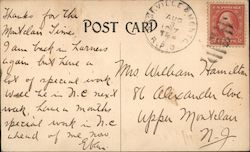 Thanks for the
Montclair time,
I am back in harness
again but have a
lot of special work
Will be in N.C. next
week, have a months
special work in N.C
ahead of me now
POST CARD
AUG
1917
R.P.O.
Mrs William Hamilton
86 Alexander Ave.
Upper Montclair
N.J